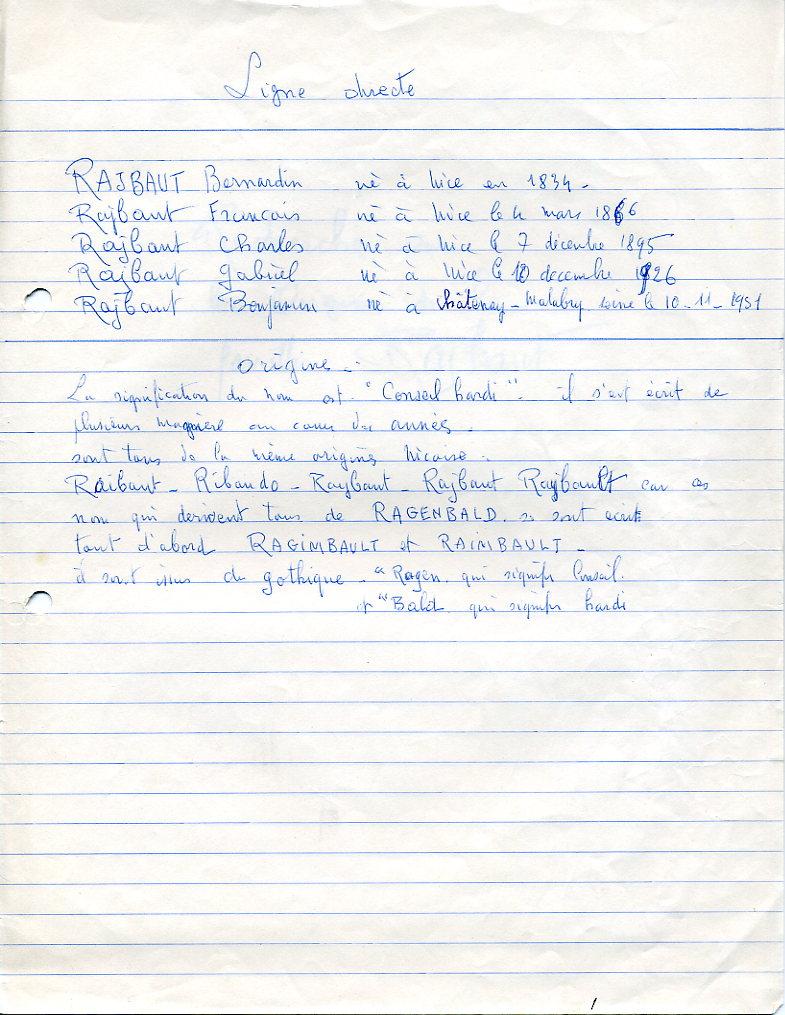 Ligne directe
RAJBAUT Bernardin né à Nice en 1834 -
Rajbaut Francais né à Nice le 4 mars 1866
Rajbaut Charles né à Nice le 7 décembre 1895
Rajbaut Gabriel né à Nice le 10 decembre 1926
Rajbaut Benjamin né à Châtenay - Malabry seine le 10 - 11 - 1951
Origine -
La signification du nom est "Conseil hardi". il s'est écrit de
plusieurs manière au cours des années.
sont tous de la même origines Nicoise.
Raibaut - Ribaudo - Raybaut - Rajbaut Raybault car ces
nom qui derivent tous de RAGENBALD. se sont ecrit
tout d'abord RAGIMBAULT et RAIMBAULT -
il sont issus du gothique - "Ragen. qui signifie Conseil.
et "Bald. qui signifie hardi